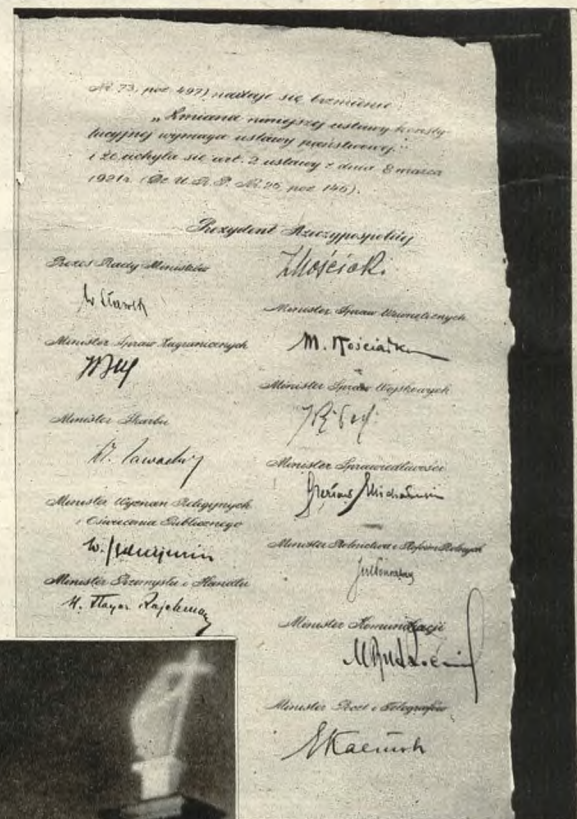 Nr. 73, poz. 497) nadaje się brzmienie:
„Zmiana niniejszej ustawy konsty-
tucyjnej wymaga ustawy państwowej,”
i że uchyla się art. 2 ustawy z dnia 8 marca
1921 r. (Dz. U. R. P. Nr. 25, poz. 146).
Prezydent Rzeczypospolitej
IMościcki
Prezes Rady Ministrów
W Sławek
Minister Spraw Wewnętrznych
M. Kościałkowski
Minister Spraw Zagranicznych
Minister Spraw Wojskowych
Minister Skarbu
Wł. Zawadzki
Minister Sprawiedliwości
Czesław Michałowski
Minister Wyznań Religijnych
i Oświecenia Publicznego
W. Jędrzejewicz
Minister Rolnictwa i Reform Rolnych
Minister Przemysłu i Handlu
H. Floyar Rajchman
Minister Komunikacji
MButkiewicz
Minister Poczt i Telegrafów
EKaliński